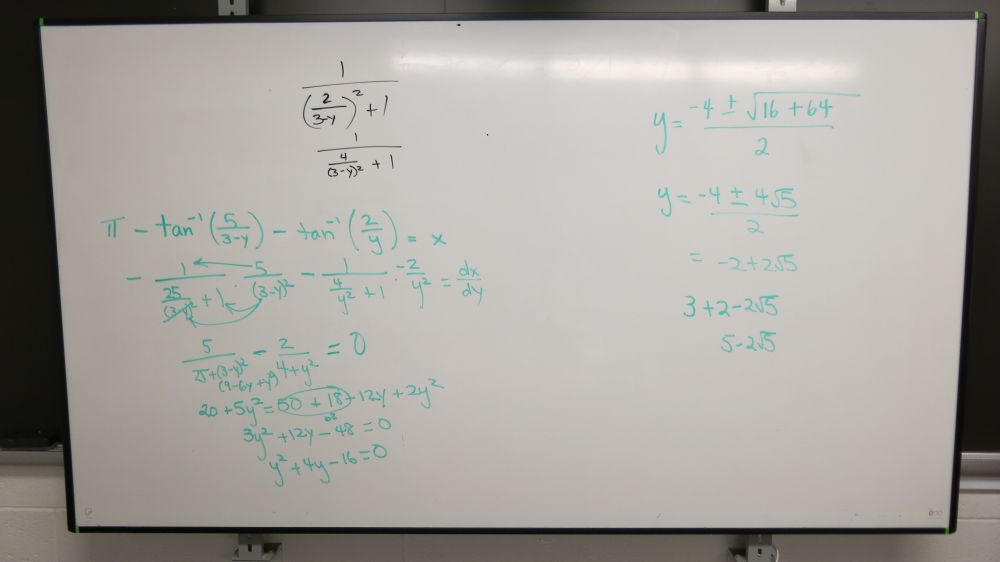 1
(2/(3-y))² + 1
1
4/(3-y)² + 1
π - tan⁻¹(5/(3-y)) - tan⁻¹(2/y) = x
- 1/(25/(3-y)² + 1) · 5/(3-y)² - 1/(4/y² + 1) · -2/y² = dx/dy
5/(25+(3-y)²) - 2/(4+y²) = 0
(9-6y+y²)
20 + 5y² = 50 + 18 - 12y + 2y²
3y² + 12y - 48 = 0
y² + 4y - 16 = 0
y = (-4 ± √(16 + 64))/2
y = (-4 ± 4√5)/2
= -2+2√5
3+2-2√5
5-2√5